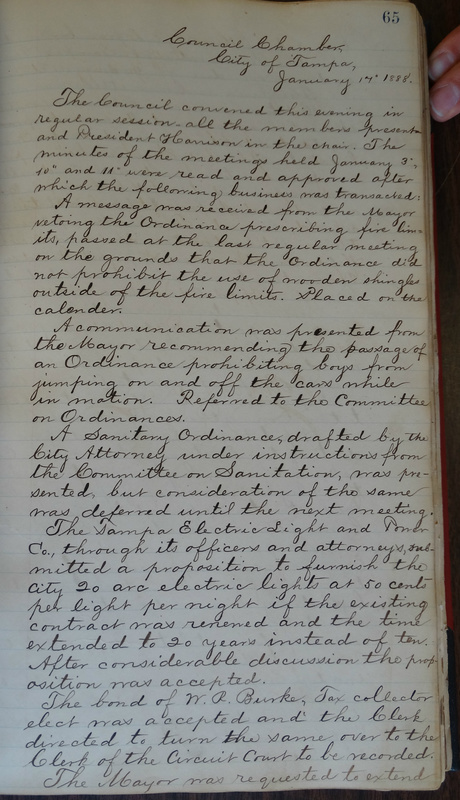 65
Council Chamber,
City of Tampa,
January 17" 1888.
The Council convened this evening in
regular session- all the members present
and President Harrison in the chair. The
minutes of the meetings held January 3",
10" and 11" were read and approved after
which the following business was transacted:
A message was received from the Mayor
vetoing the Ordinance prescribing fire lim-
its, passed at the last regular meeting
on the grounds that the Ordinance did
not prohibit the use of wooden shingles
outside of the fire limits. Placed on the
calender.
A communication was presented from
the Mayor recommending the passage of
an Ordinance prohibiting boys from
jumping on and off the cars while
in motion. Referred to the Committee
on Ordinances.
A Sanitary Ordinance, drafted by the
City Attorney under instructions from
the Committee on Sanitation, was pre-
sented, but consideration of the same
was deferred until the next meeting.
The Tampa Electric Light and Power
Co., through its officers and attorneys, sub-
mitted a proposition to furnish the
city 20 arc electric lights at 50 cents
per light per night if the existing
contract was renewed and the time
extended to 20 years instead of ten.
After considerable discussion the prop-
osition was accepted.
The bond of W. R. Burke, Tax collector
elect was accepted and the Clerk
directed to turn the same over to the
Clerk of the Circuit Court to be recorded.
The Mayor was requested to extend